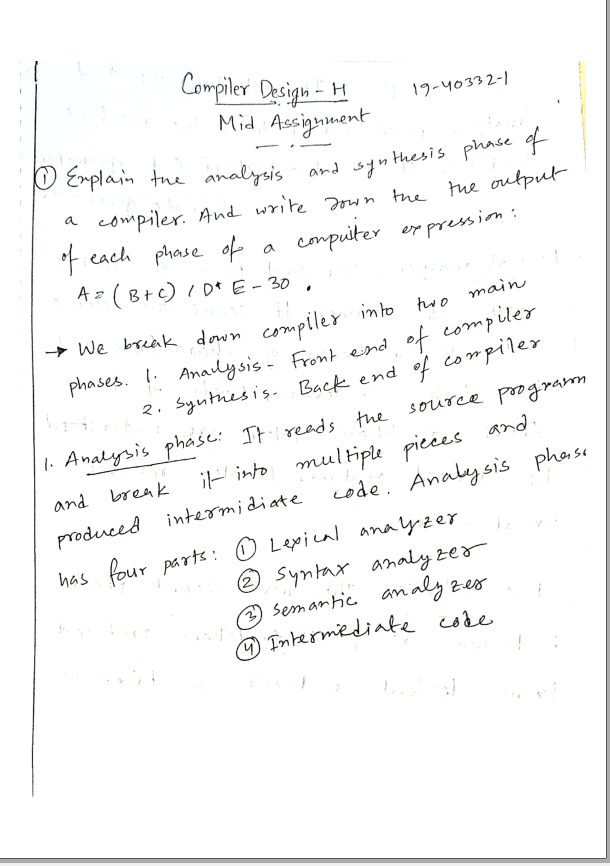 Compiler Design - H 19-40332-1
Mid Assignment
① Explain the analysis and synthesis phase of
a compiler. And write down the the output
of each phase of a conpuiter expression:
A = (B+C) / D* E - 30 .
→ We break down compiler into two main
phases. 1. Analysis - Front end of compiler
2. Synthesis - Back end of compiler
1. Analysis phase: It reads the source programm
and break it into multiple pieces and
produced intermidiate code. Analysis phase
has four parts: ① Lexical analyzer
② Syntax analyzer
③ Semantic analyzer
④ Intermediate code